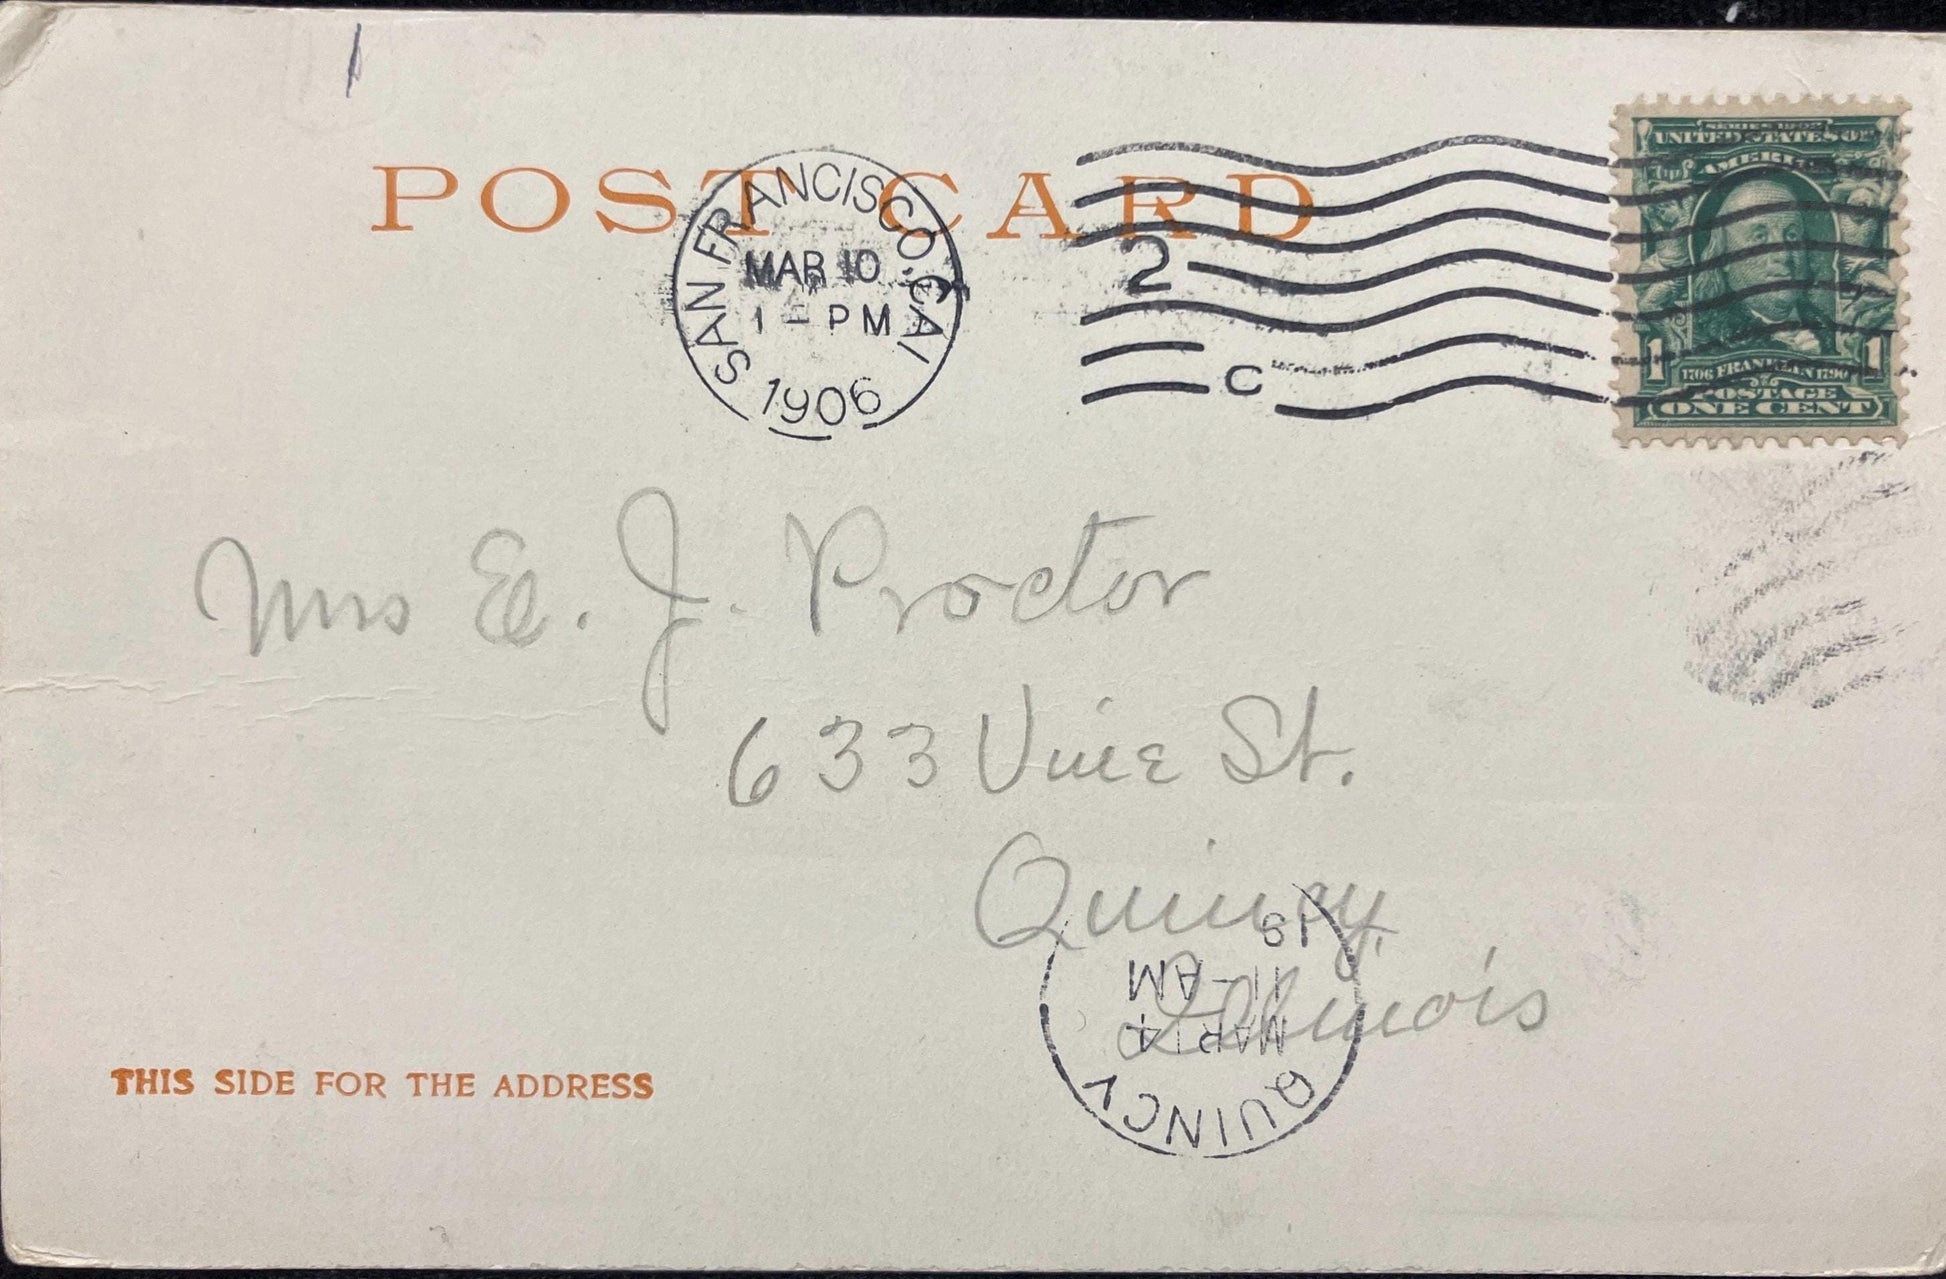 POST CARD
SAN FRANCISCO, CAL
MAR 10
1 - PM
1906
2
C
SERIES 1902
UNITED STATES OF
AMERICA
1 1
1706 FRANKLIN 1790
POSTAGE
ONE CENT
Mrs E. J. Proctor
633 Vine St.
Quincy,
Illinois
QUINCY
MAR 14
11 - AM
19
THIS SIDE FOR THE ADDRESS